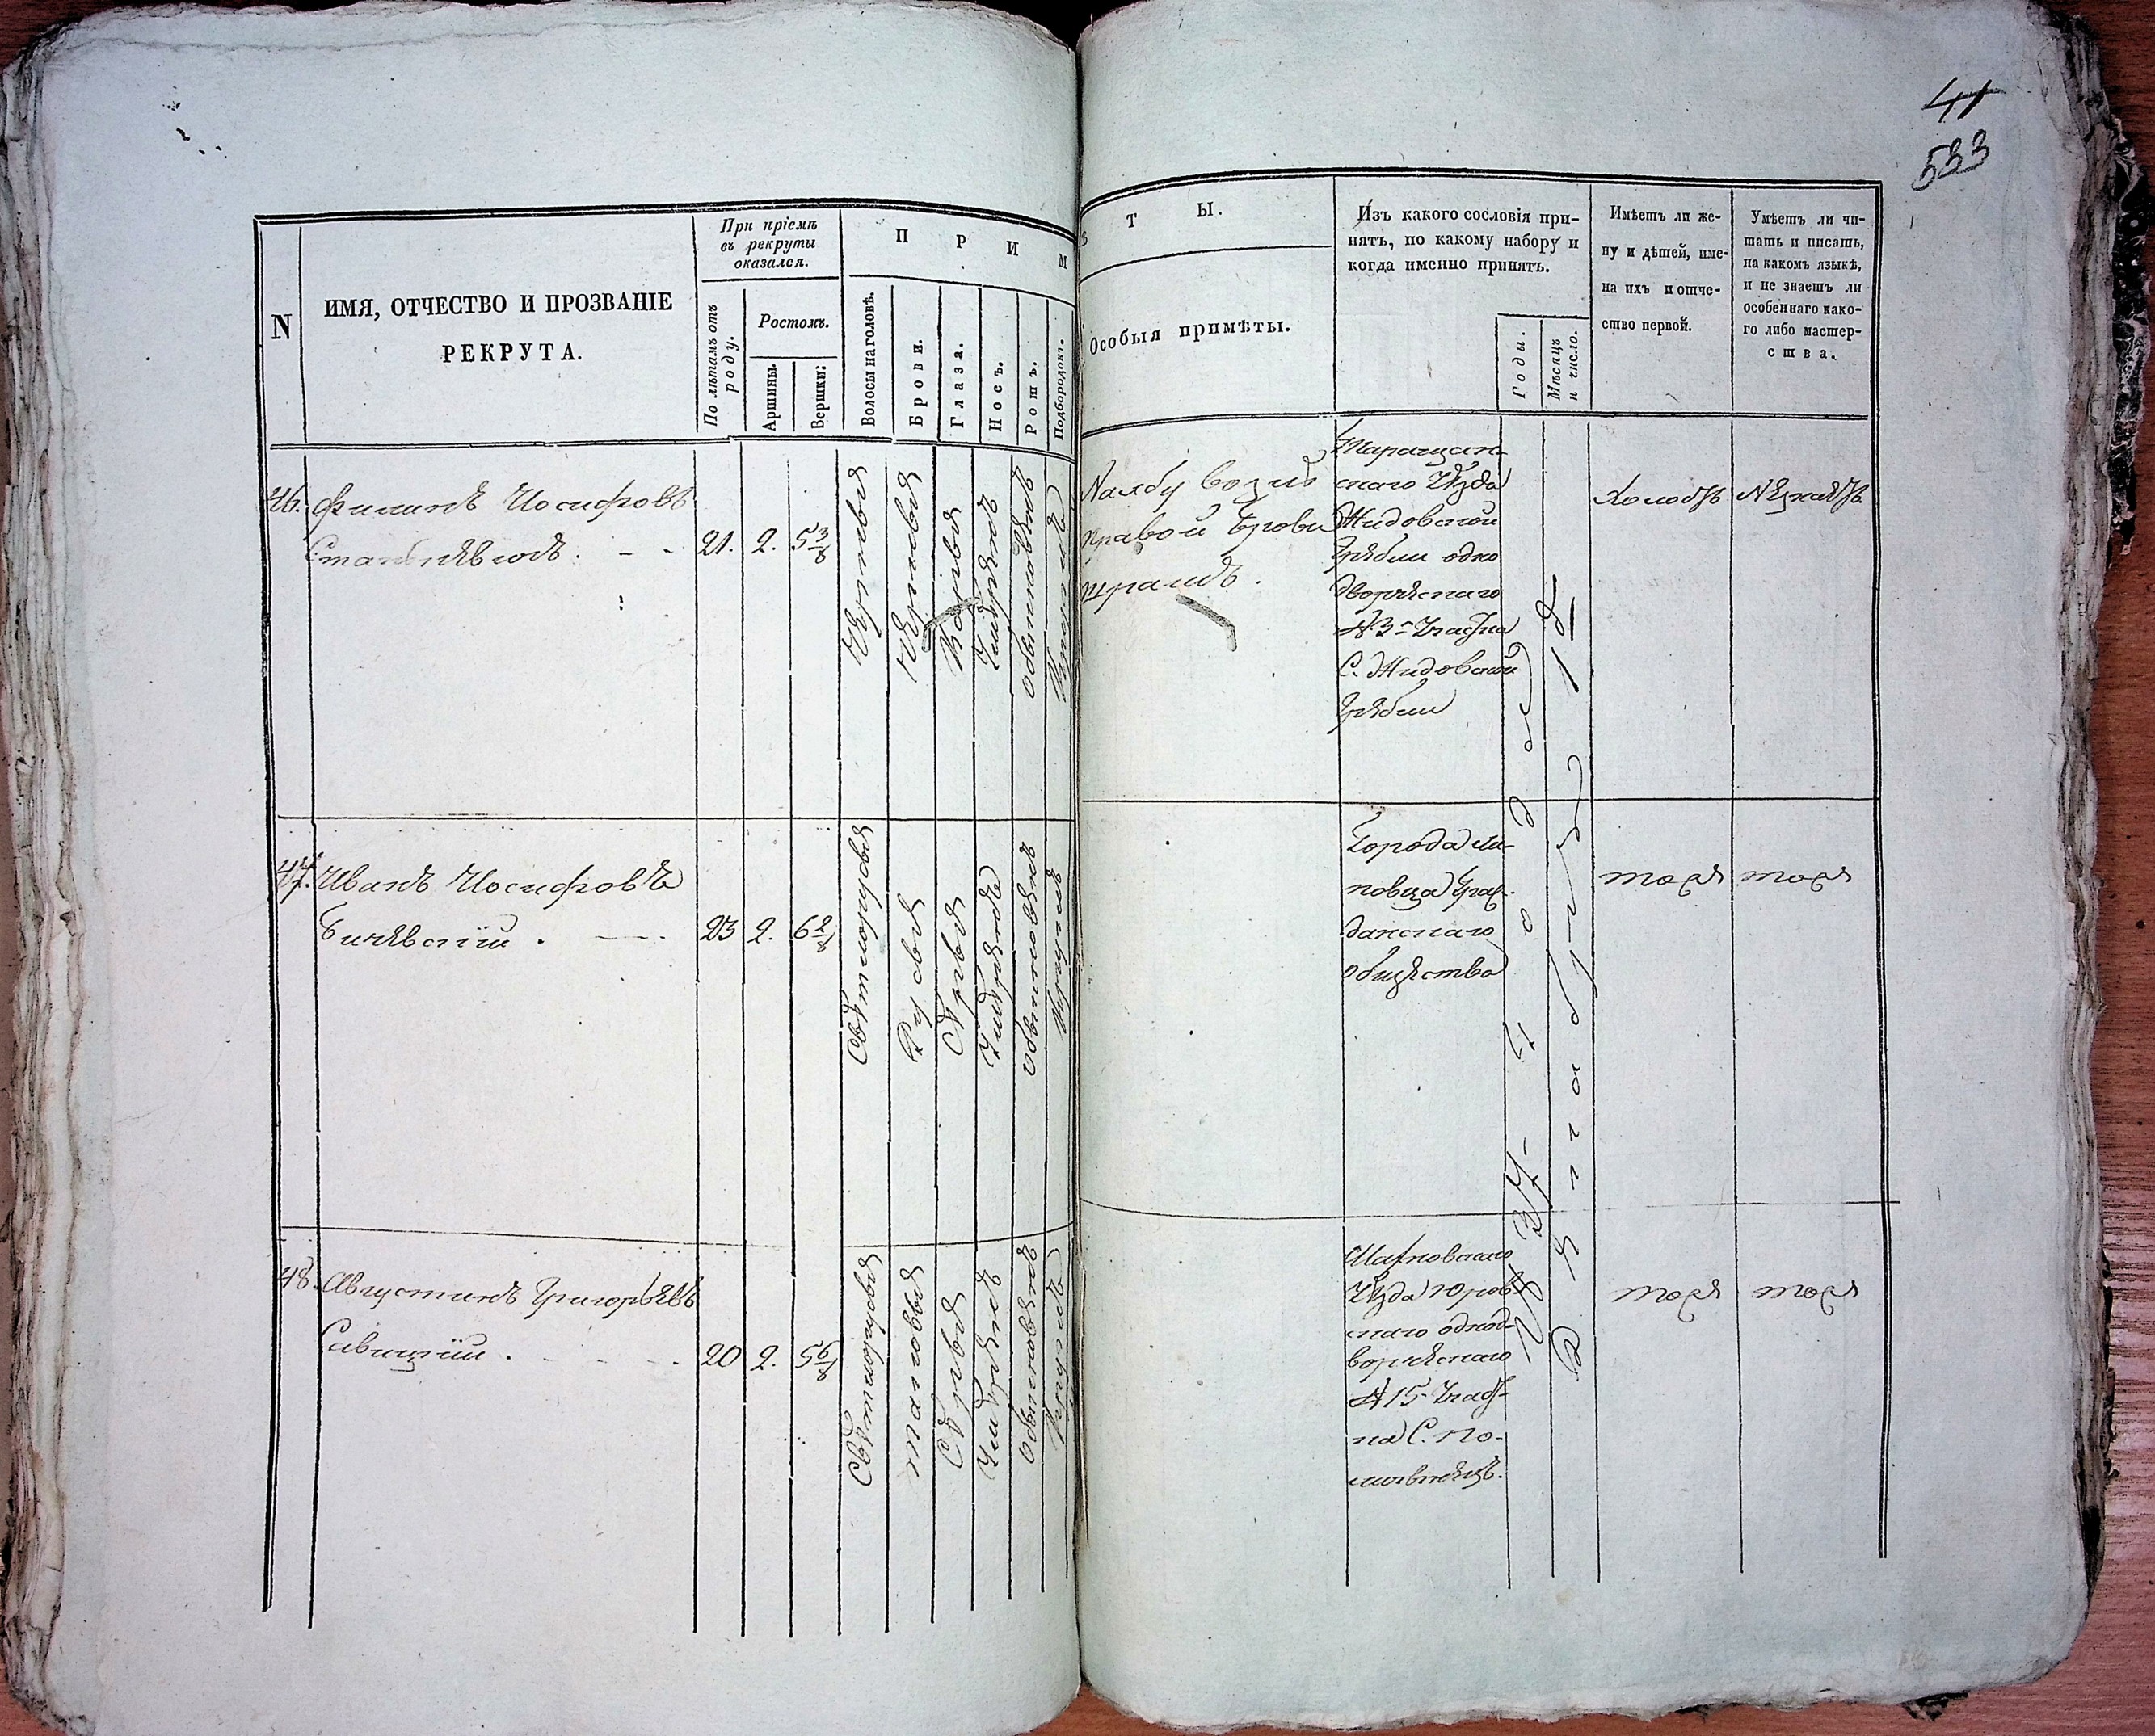 41
533
N
ИМЯ, ОТЧЕСТВО И ПРОЗВАНІЕ
РЕКРУТА.
При пріемѣ
въ рекруты
оказался.
По лѣтамъ отъ
роду.
Ростомъ.
Аршины.
Вершки:
П Р И М
Волосы на головѣ.
Брови.
Глаза.
Носъ.
Ротъ.
Подбородокъ.
Ѣ Т Ы.
Особыя примѣты.
Изъ какого сословія при-
нятъ, по какому набору и
когда именно принятъ.
Годы.
Мѣсяцъ
и число.
Имѣетъ ли же-
ну и дѣтей, име-
на ихъ и отче-
ство первой.
Умѣетъ ли чи-
тать и писать,
на какомъ языкѣ,
и не знаетъ ли
особеннаго како-
го либо мастер-
ства.
46. Филипъ Іосифовъ
21. 2. 5 3/8
Черныя
Черныя
Карія
Умѣрѣнъ
обыкновѣнъ
На лбу возлѣ
правой брови
шрамъ.
Таращан-
скаго Уѣзда
Жидовской
Гребли одно
дворческаго
№ 3го Участка
С. Жидовской
Гребли
Холостъ
Незнаетъ
47. Иванъ Іосифовъ
23 2. 6 2/8
Свѣтлорусыя
Русыя
Сѣрыя
Умѣрѣнъ
обыкновѣнъ
круглъ
Города Ли-
повца Граж-
данскаго
общества
тоже
тоже
48. Августинъ Григорьевъ
Савицкіи.
20 2. 5 6/8
Свѣтлорусыя
таковыя
Сѣрыя
Умѣрѣнъ
Обыкновѣнъ
круглъ
Уѣзда
скаго однод-
ворческаго
№ 15 Участ-
ка С.
тоже
тоже
года
Декабря 12